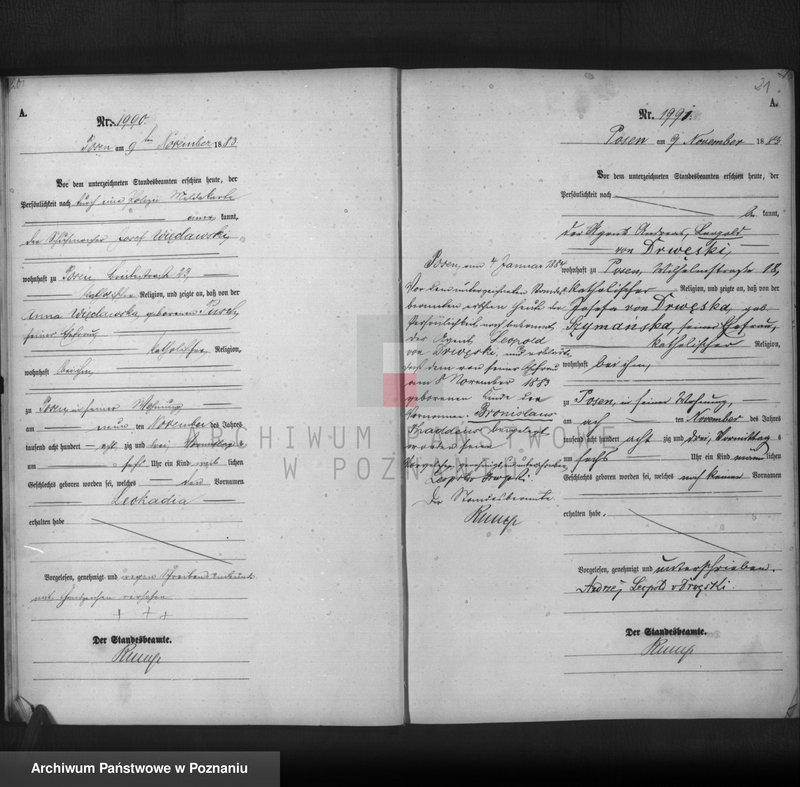 A.
Nr. 1990
Posen am 9ten November 1883
Vor dem unterzeichneten Standesbeamten erschien heute, der
Persönlichkeit nach durch eine Polizei Meldekarte
kannt,
der Schuhmacher Josef
wohnhaft zu Posen Breitestrasse 23
katholischer Religion, und zeigte an, daß von der
Anna geborenen
seiner Ehefrau
katholischer Religion,
wohnhaft bei ihm
zu Posen in seiner Wohnung
am neun ten November des Jahres
tausend acht hundert acht zig und drei Vormittags
um Uhr ein Kind weib lichen
Geschlechts geboren worden sei, welches den Vornamen
Leokadia
erhalten habe
Vorgelesen, genehmigt und wegen Schreibensunkunde
mit Handzeichen versehen
+ + +
Der Standesbeamte.
Rump
21
A.
Nr. 1991.
Posen am 9 November 1883
Vor dem unterzeichneten Standesbeamten erschien heute, der
Persönlichkeit nach
be kannt,
der Agent Andreas, Leopold
von Drwęski,
wohnhaft zu Posen, Wilhelmstrasse 18,
katholischer Religion, und zeigte an, daß von der
Josefa von Drwęska, geb.
Szymańska, seiner Ehefrau,
katholischer Religion,
wohnhaft bei ihm,
zu Posen, in seiner Wohnung,
am ach ten November des Jahres
tausend acht hundert acht zig und drei, Vormittag s
um sechs Uhr ein Kind männ lichen
Geschlechts geboren worden sei, welches noch keinen Vornamen
erhalten habe.
Vorgelesen, genehmigt und unterschrieben.
Andrzej Leopold v Drwęski.
Der Standesbeamte.
Rump
Posen, am 4 Januar 1884
Vor dem unterzeichneten Standes-
beamten erschien heute der
Persönlichkeit nach bekannt,
der Agent Leopold
von Drwęski, und erklärte
daß dem von seiner Ehefrau
am 8 November 1883
geborenen Kinde die
Vornamen Bronislaus
Thaddäus beigelegt
worden seien
Vorgelesen, genehmigt und unterschrieben
Leopold Drwęski
Der Standesbeamte.
Rump
ARCHIWUM PAŃSTWOWE
W POZNANIU
Archiwum Państwowe w Poznaniu